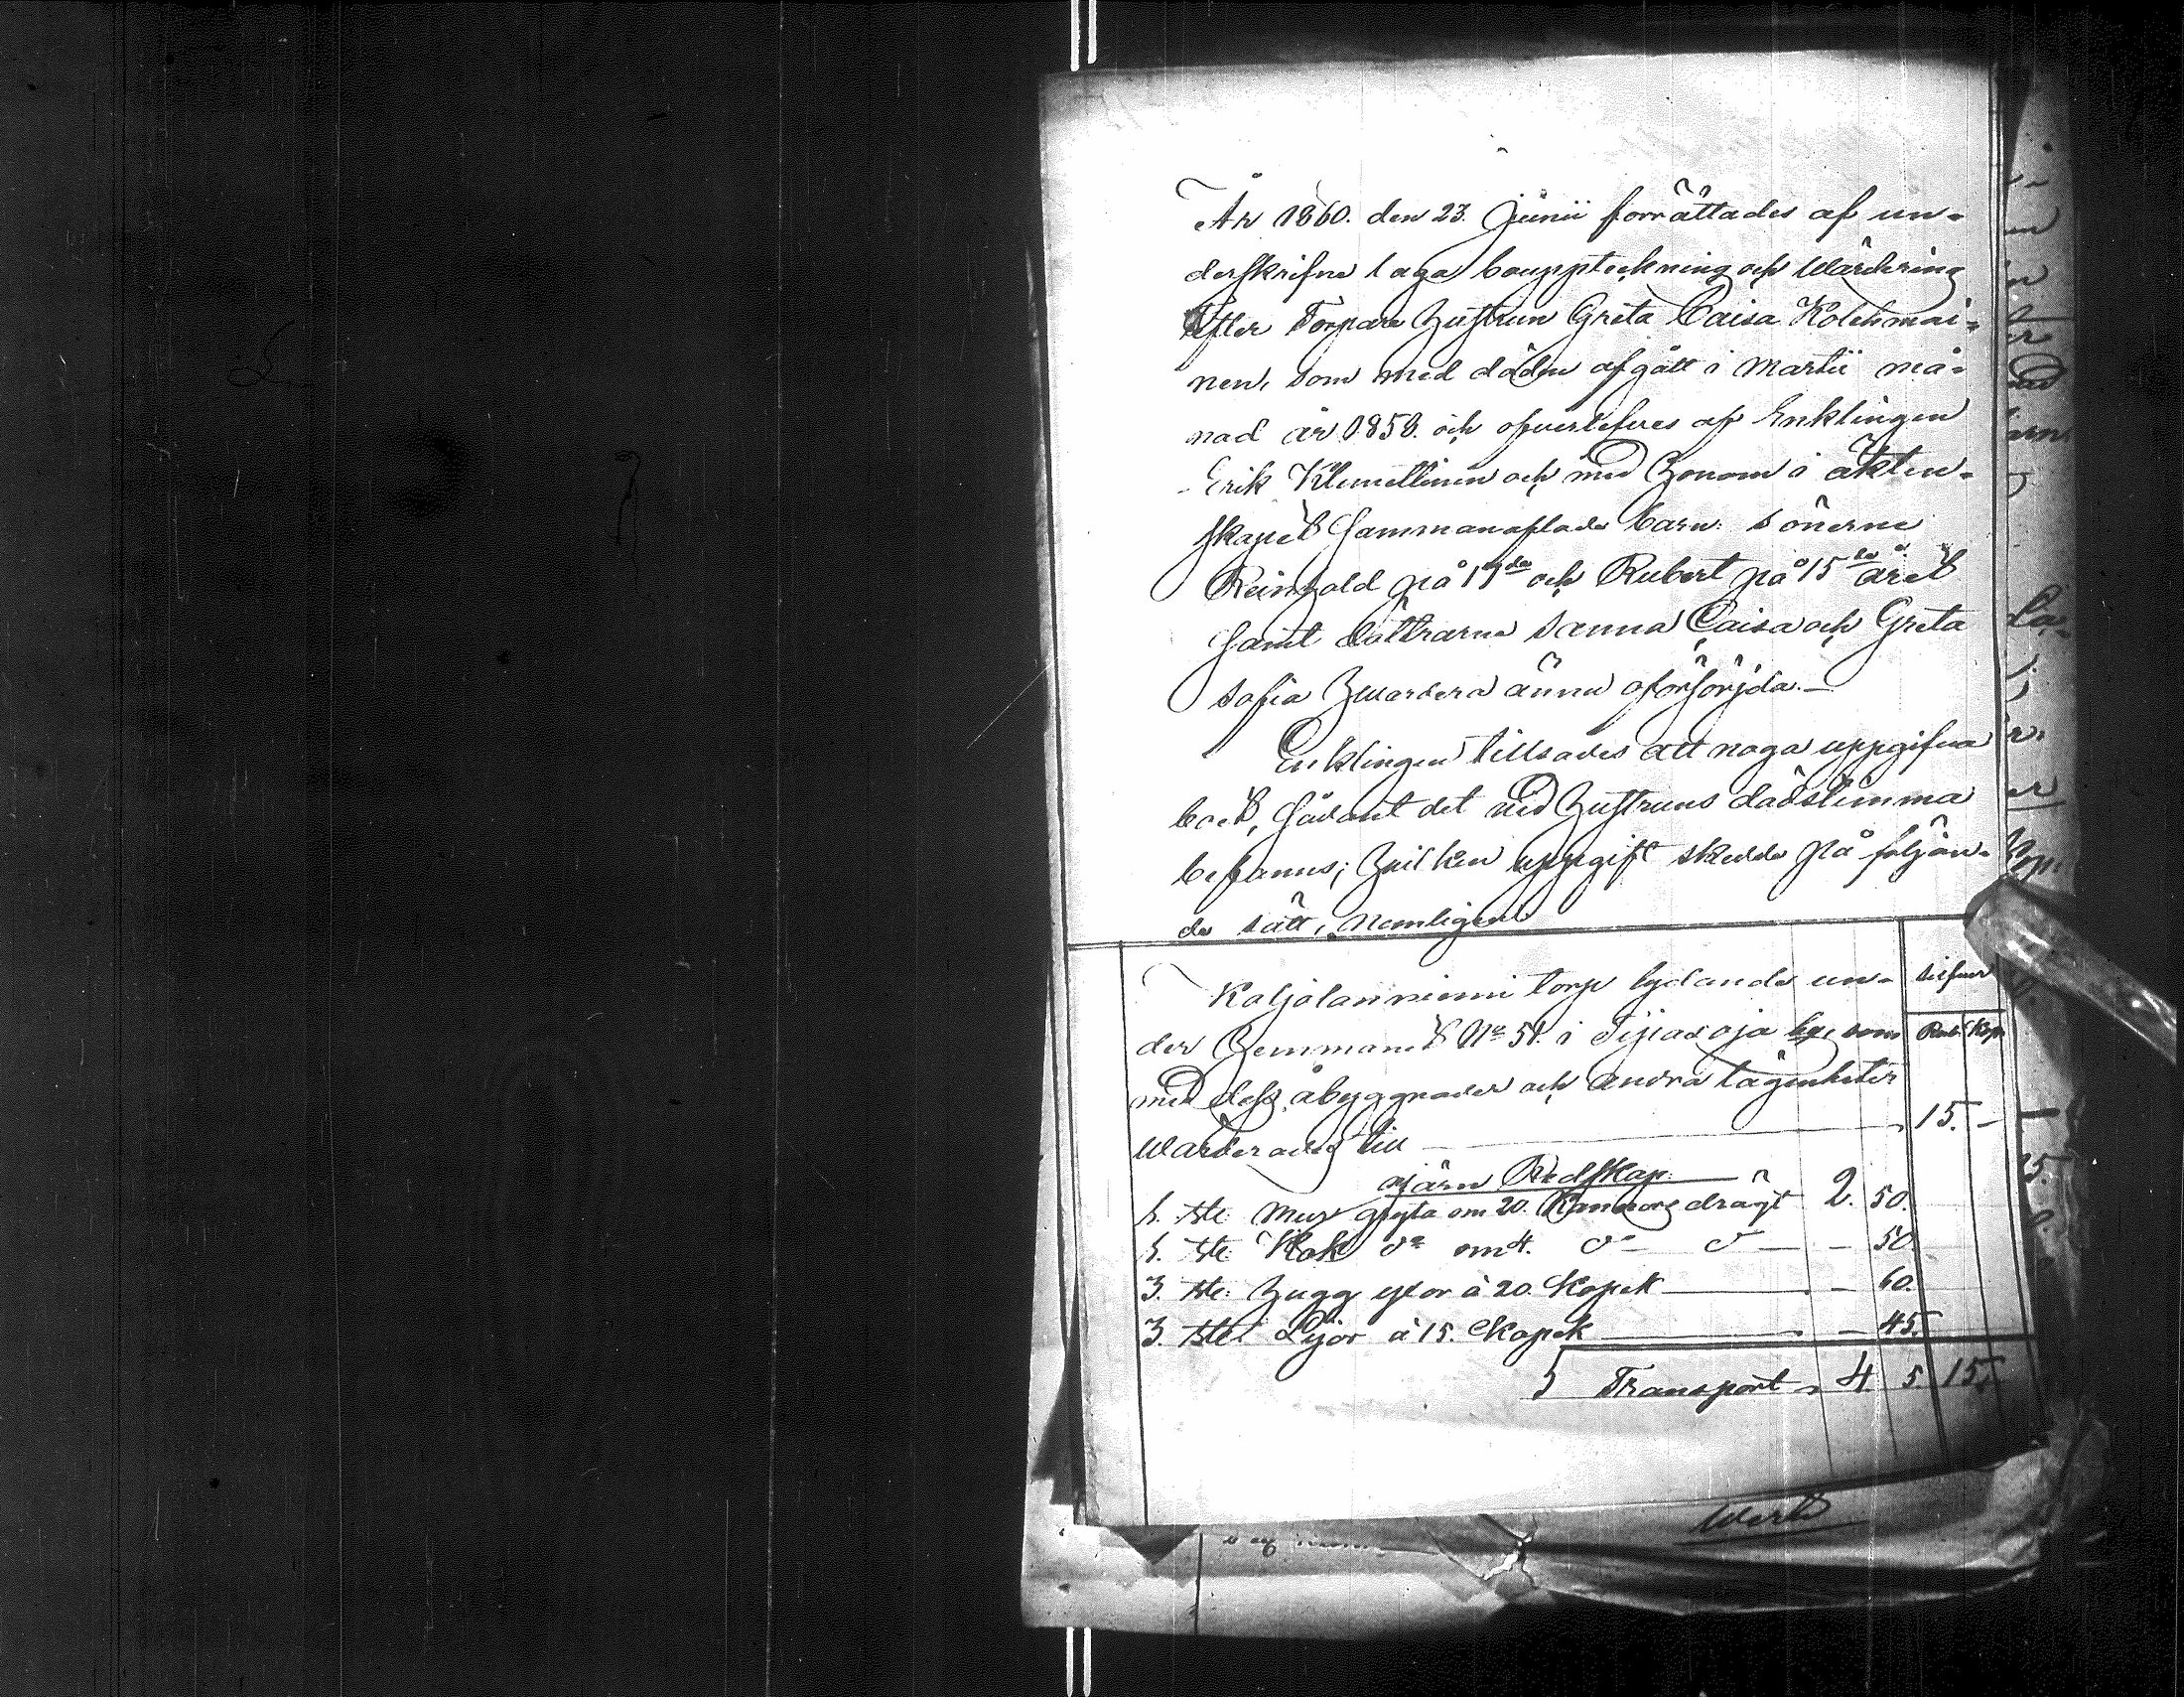 År 1860. den 23. Junii förrättades af un-
derskrifne laga bouppteckning och Wärdering
Efter Torpare hustrun Greta Caisa Kolehmai-
nen, som med döden afgått i Martii må-
nad år 1858. och öfverlefves af Enklingen
Erik Klemettinen och med honom i äkten-
skapet sammanaflade barn: Sönerne
Reinhold på 17de och Rubert på 15de året
samt döttrarne Sanna Caisa och Greta
Sofia hvardera ännu oförsörjda.
Enklingen tillsades att noga uppgifva
boet, sådant det vid hustruns dödstimma
befanns; hvilken uppgift skedde på följan-
de sätt, Nemligen
Silfver
Koljolanniemi torp lydande un-
der hemmanet No 51. i Tipasoja by, som
Rub. Kop.
med dess åbyggnader och andra lägenheter
Warderades till 15. -
Järn Redskap.
1. st. Mur gryta om 20. Kannors drägt 2. 50.
1. st. Kok do om 4. do do - 50.
3. st. hugg yxor à 20. Kopek - 60.
3. st. Lijor à 15. Kopek - 45.
Transport 4. 5. 15.
Werte